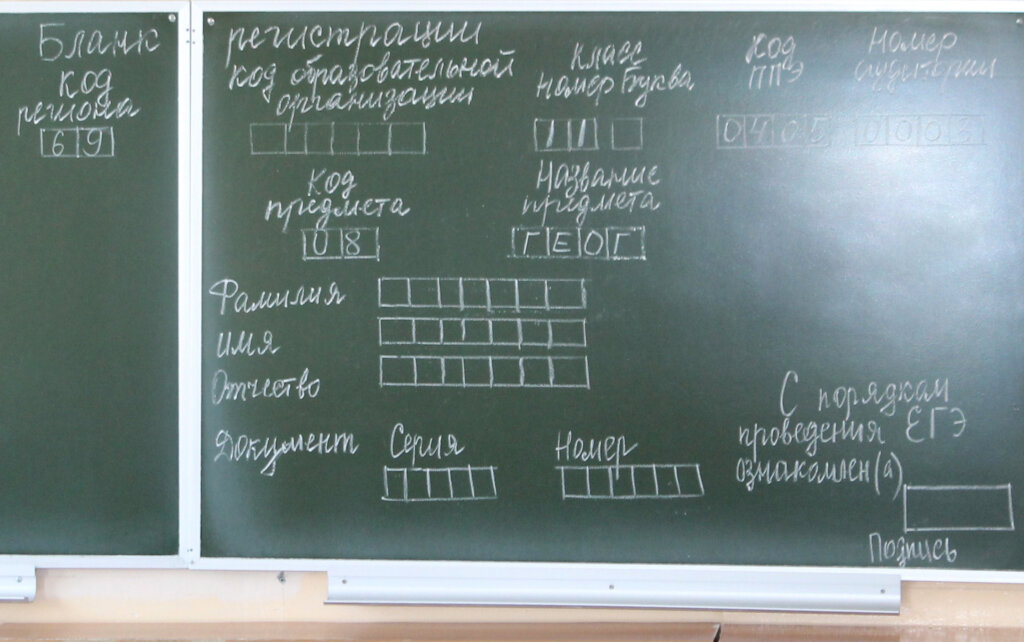 Бланк регистрации
код региона
69
код образовательной организации
Класс
Номер Буква
11
Код ППЭ
0405
Номер аудитории
0003
Код предмета
08
Название предмета
ГЕОГ
Фамилия
имя
Отчество
Документ Серия Номер
С порядкам
проведения ЕГЭ
ознакомлен(а)
Подпись